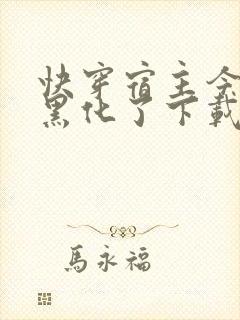 快穿宿主今
黑化了下載
馬永福